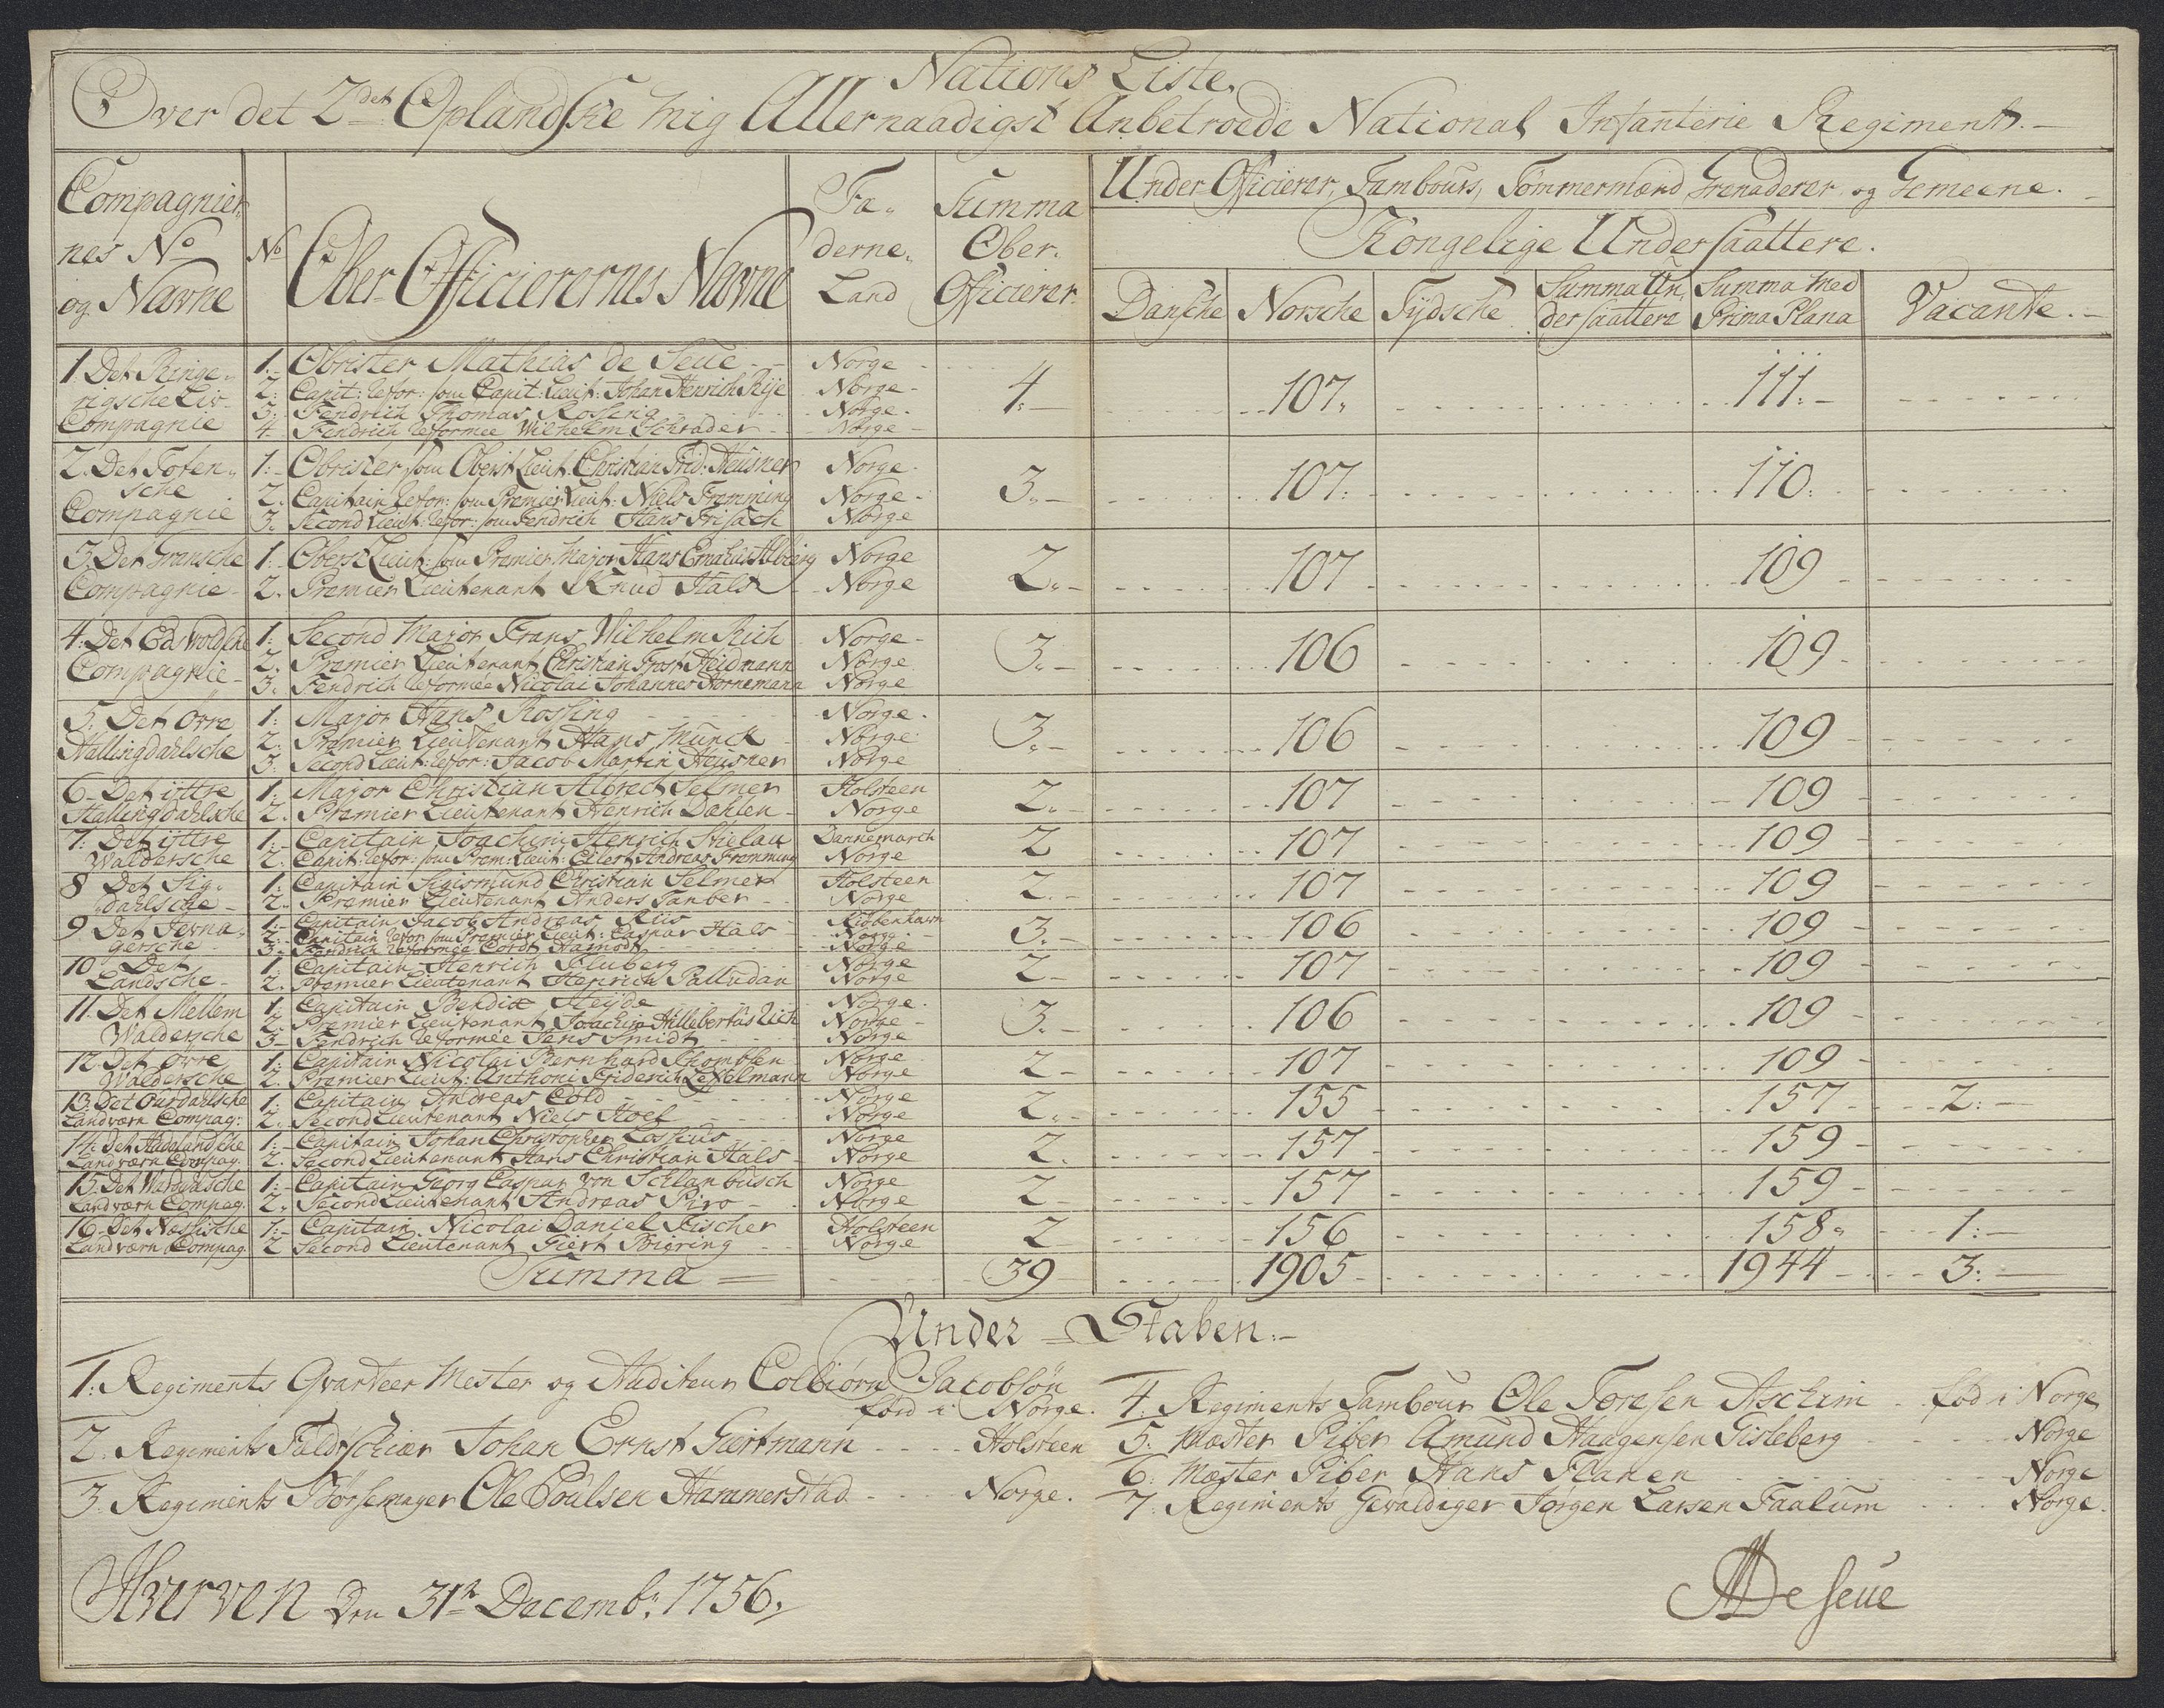 Nations Liste
Over det 2det Oplandske mig Allernaadigst Anbetroede National Infanterie Regiment.
Compagnier
nes No
og Navne
No
Ober Officierernes Navne
Fa-
derne-
Land
Summa
Ober-
Officierer
Under Officierer, Tambours, Tømmermænd Grenaderer og Gemeene.
Kongelige Undersaattere.
Danske Norsche Tydsche Summa Un- dersaattere Summa med Prima Plana Vacante.
1 Det Ringe-
rigsche Liv-
Compagnie
1. Obrister Mathias de Seue Norge
2. Capit: refor: som Capit: Lieut: Johan Henrich Rije Norge
3. Fendrich Thomas Rossing Norge
4. Fendrich reformee Wilhelm Schrader Norge
4 107 111
2. Det Toten-
sche
Compagnie
1. Obrister som Oberst Lieut: Christian Frid: Heusner Norge
2. Capitain refor: som Premier Lieut: Niels Fremming Norge
3. Second Lieut: refor: som Fendrich Hans Frisach Norge
3 107 110
3. Det Gransche
Compagnie
1. Oberst Lieut: som Premier Major Hans Norge
2. Premier Lieutenant Knud Hals Norge
2 107 109
4. Det Edsvoldsche
Compagnie
1. Second Major Frans Wilhelm Rich Norge
2. Premier Lieutenant Christian Frost Heidmann Norge
3. Fendrich reformée Nicolai Johannes Hornemann Norge
3 106 109
5. Det øvre
Hallingdahlsche
1. Major Hans Rossing Norge
2. Premier Lieutenant Hans Munck Norge
3. Second Lieut: refor: Jacob Martin Heusner Norge
3 106 109
6. Det ÿttre
Hallingdahlsche
1. Major Christian Albrect Selmer Holsteen
2. Premier Lieutenant Henrich Dahlen Norge
2 107 109
7. Det ÿttre
Waldersche
1. Capitain Joachim Henrich Stielau Dannemarch
2. Capit: refor: som Prem: Lieut: Eilert Andreas Fremming Norge
2 107 109
8 Det Sig-
dahlsche
1. Capitain Sigismund Christian Selmer Holsteen
2. Premier Lieutenant Anders Tanber Norge
2 107 109
9 Det Jevna-
gersche
1. Capitain Jacob Andreas Riis Kiøbenhavn
2. Capitain refor: som Premier Lieut: Caspar Hals Norge
3. Fendrich reformée Cordt Norge
3 106 109
10 Det
Landsche
1. Capitain Henrich Fluberg Norge
2. Premier Lieutenant Henrich Palludan Norge
2 107 109
11. Det Mellem
Waldersche
1. Capitain Bendix Heÿde Norge
2. Premier Lieutenant Joachim Hillebertus Lich Norge
3. Fendrich reformée Jens Smidt Norge
3 106 109
12 Det øvre
Waldersche
1. Capitain Nicolai Bernhard Thomblen Norge
2. Premier Lieut: Anthoni Friderich Norge
2 107 109
13. Det Ourdahlsche
Landværn Compag:
1. Capitain Andreas Cold Norge
2. Second Lieutenant Niels Hoel Norge
2 155 157 2
14. Det Hadelandsche
Landværn Compag:
1. Capitain Johan Christopher Lossius Norge
2. Second Lieutenant Hans Christian Hals Norge
2 157 159
15. Det
Landværn Compag:
1. Capitain Georg Caspar von Schlanbusch Norge
2. Second Lieutenant Andreas Piro Norge
2 157 159
16. Det Nessische
Landværn Compag.
1. Capitain Nicolai Daniel Fischer Holsteen
2 Second Lieutenant Fiert Biering Norge
2 156 158 1
Summa 39 1905 1944 3
Under Staben.
1. Regiments Qvarteer Mester og Auditeur Colbiørn Jacobsøn
fød i Norge.
2. Regiments Feldtschiær Johan Ernst Giertmann Holsteen
3. Regiments Børsemager Ole Poulsen Hammerstad Norge.
4. Regiments Tambour Ole Toresen Aschim fød i Norge
5. Mæster Piber Amund Haagensen Gisleberg Norge
6. Mæster Piber Hans Flanen Norge
7. Regiments Gevaldiger Jørgen Larsen Faalum Norge.
Hverven den 31te Decembr. 1756.
MDeseue